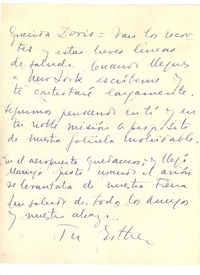 Querida Doris = Van los recor-
tes y estas breves líneas
de saludo. Cuando llegues
a New York escríbeme y
te contestaré largamente.
Seguimos pensando en tí y en
tu noble misión a propósito
de nuestra Gabriela inolvidable.
En el aeropuerto quedamos, y llegó
justo cuando el avión
se levantaba de nuestra tierra
Un saludo de todos los amigos
y nuestro abrazo.
Tu Esther